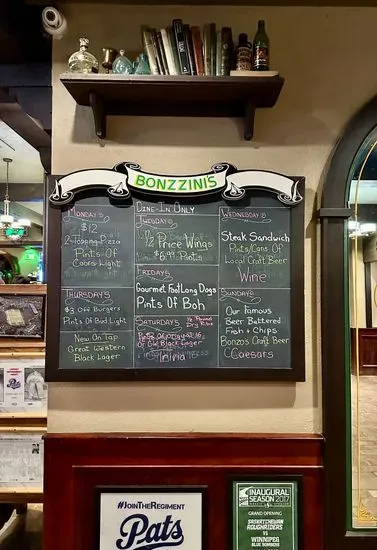 BONZZINI'S
DINE-IN ONLY
MONDAYS
$12
2-Topping Pizza
Pints Of
Coors Light
TUESDAYS
1/2 Price Wings
Pints
WEDNESDAYS
Steak Sandwich
Pints/Cans Of
Local Craft Beer
Wine
THURSDAYS
$3 Off Burgers
Pints Of Bud Light
FRIDAYS
Gourmet Foot Long Dogs
Pints Of Boh
SATURDAYS
Of
Black Lager
Trivia
SUNDAYS
Our Famous
Beer Battered
Fish + Chips
Bonzos Craft Beer
Caesars
New On Tap
Great Western
Black Lager
#JOINTHEREGIMENT
Pats
INAUGURAL
SEASON 2017
GRAND OPENING
SASKATCHEWAN
ROUGHRIDERS
VS
WINNIPEG
BLUE BOMBERS